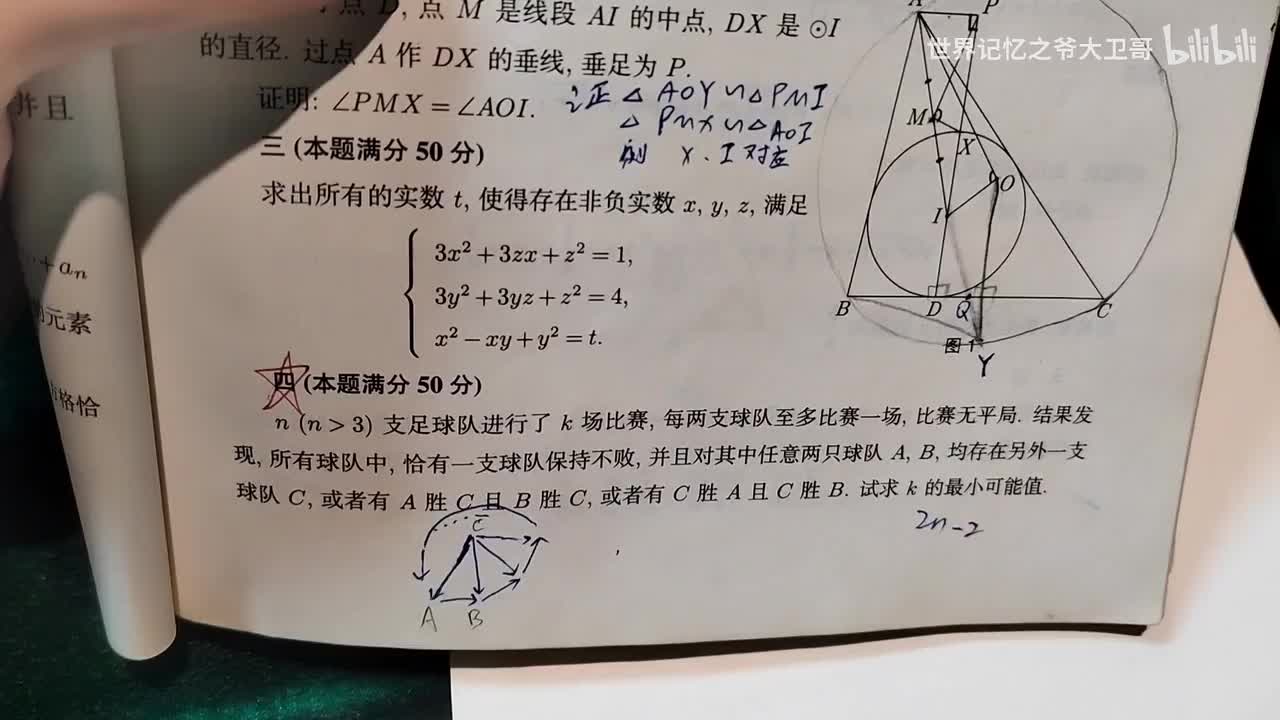 点 D, 点 M 是线段 AI 的中点, DX 是 ⊙I
的直径. 过点 A 作 DX 的垂线, 垂足为 P.
证明: ∠PMX = ∠AOI.
证 △ AOY ∽ △ PMI
△ PMX ∽ △ AOI
则 X . I 对应
三 (本题满分 50 分)
求出所有的实数 t, 使得存在非负实数 x, y, z, 满足
3x² + 3zx + z² = 1,
3y² + 3yz + z² = 4,
x² − xy + y² = t.
四 (本题满分 50 分)
n (n > 3) 支足球队进行了 k 场比赛, 每两支球队至多比赛一场, 比赛无平局. 结果发
现, 所有球队中, 恰有一支球队保持不败, 并且对其中任意两只球队 A, B, 均存在另外一支
球队 C, 或者有 A 胜 C 且 B 胜 C, 或者有 C 胜 A 且 C 胜 B. 试求 k 的最小可能值.
2n-2
C
A B
并且
+ aₙ
元素
格恰
A P
M
X
O
I
B D Q C
图 1
Y
世界记忆之爷大卫哥 bilibili